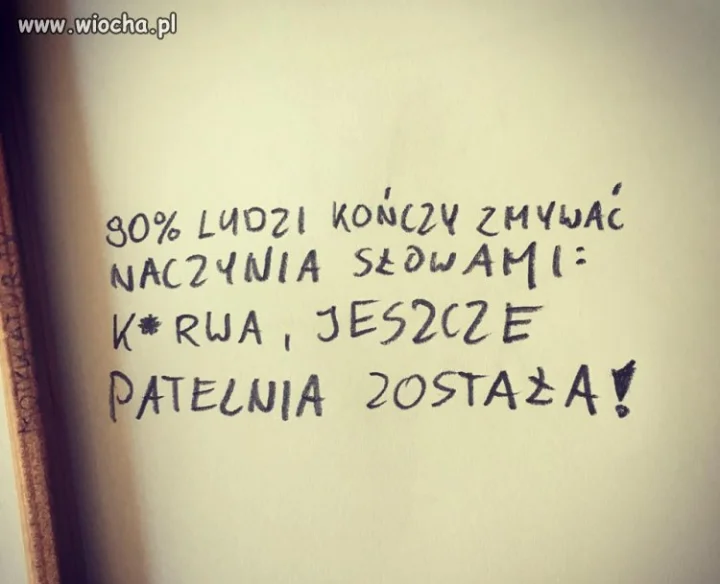 www.wiocha.pl
90% LUDZI KOŃCZY ZMYWAĆ
NACZYNIA SŁOWAMI:
K*RWA, JESZCZE
PATELNIA ZOSTAŁA!